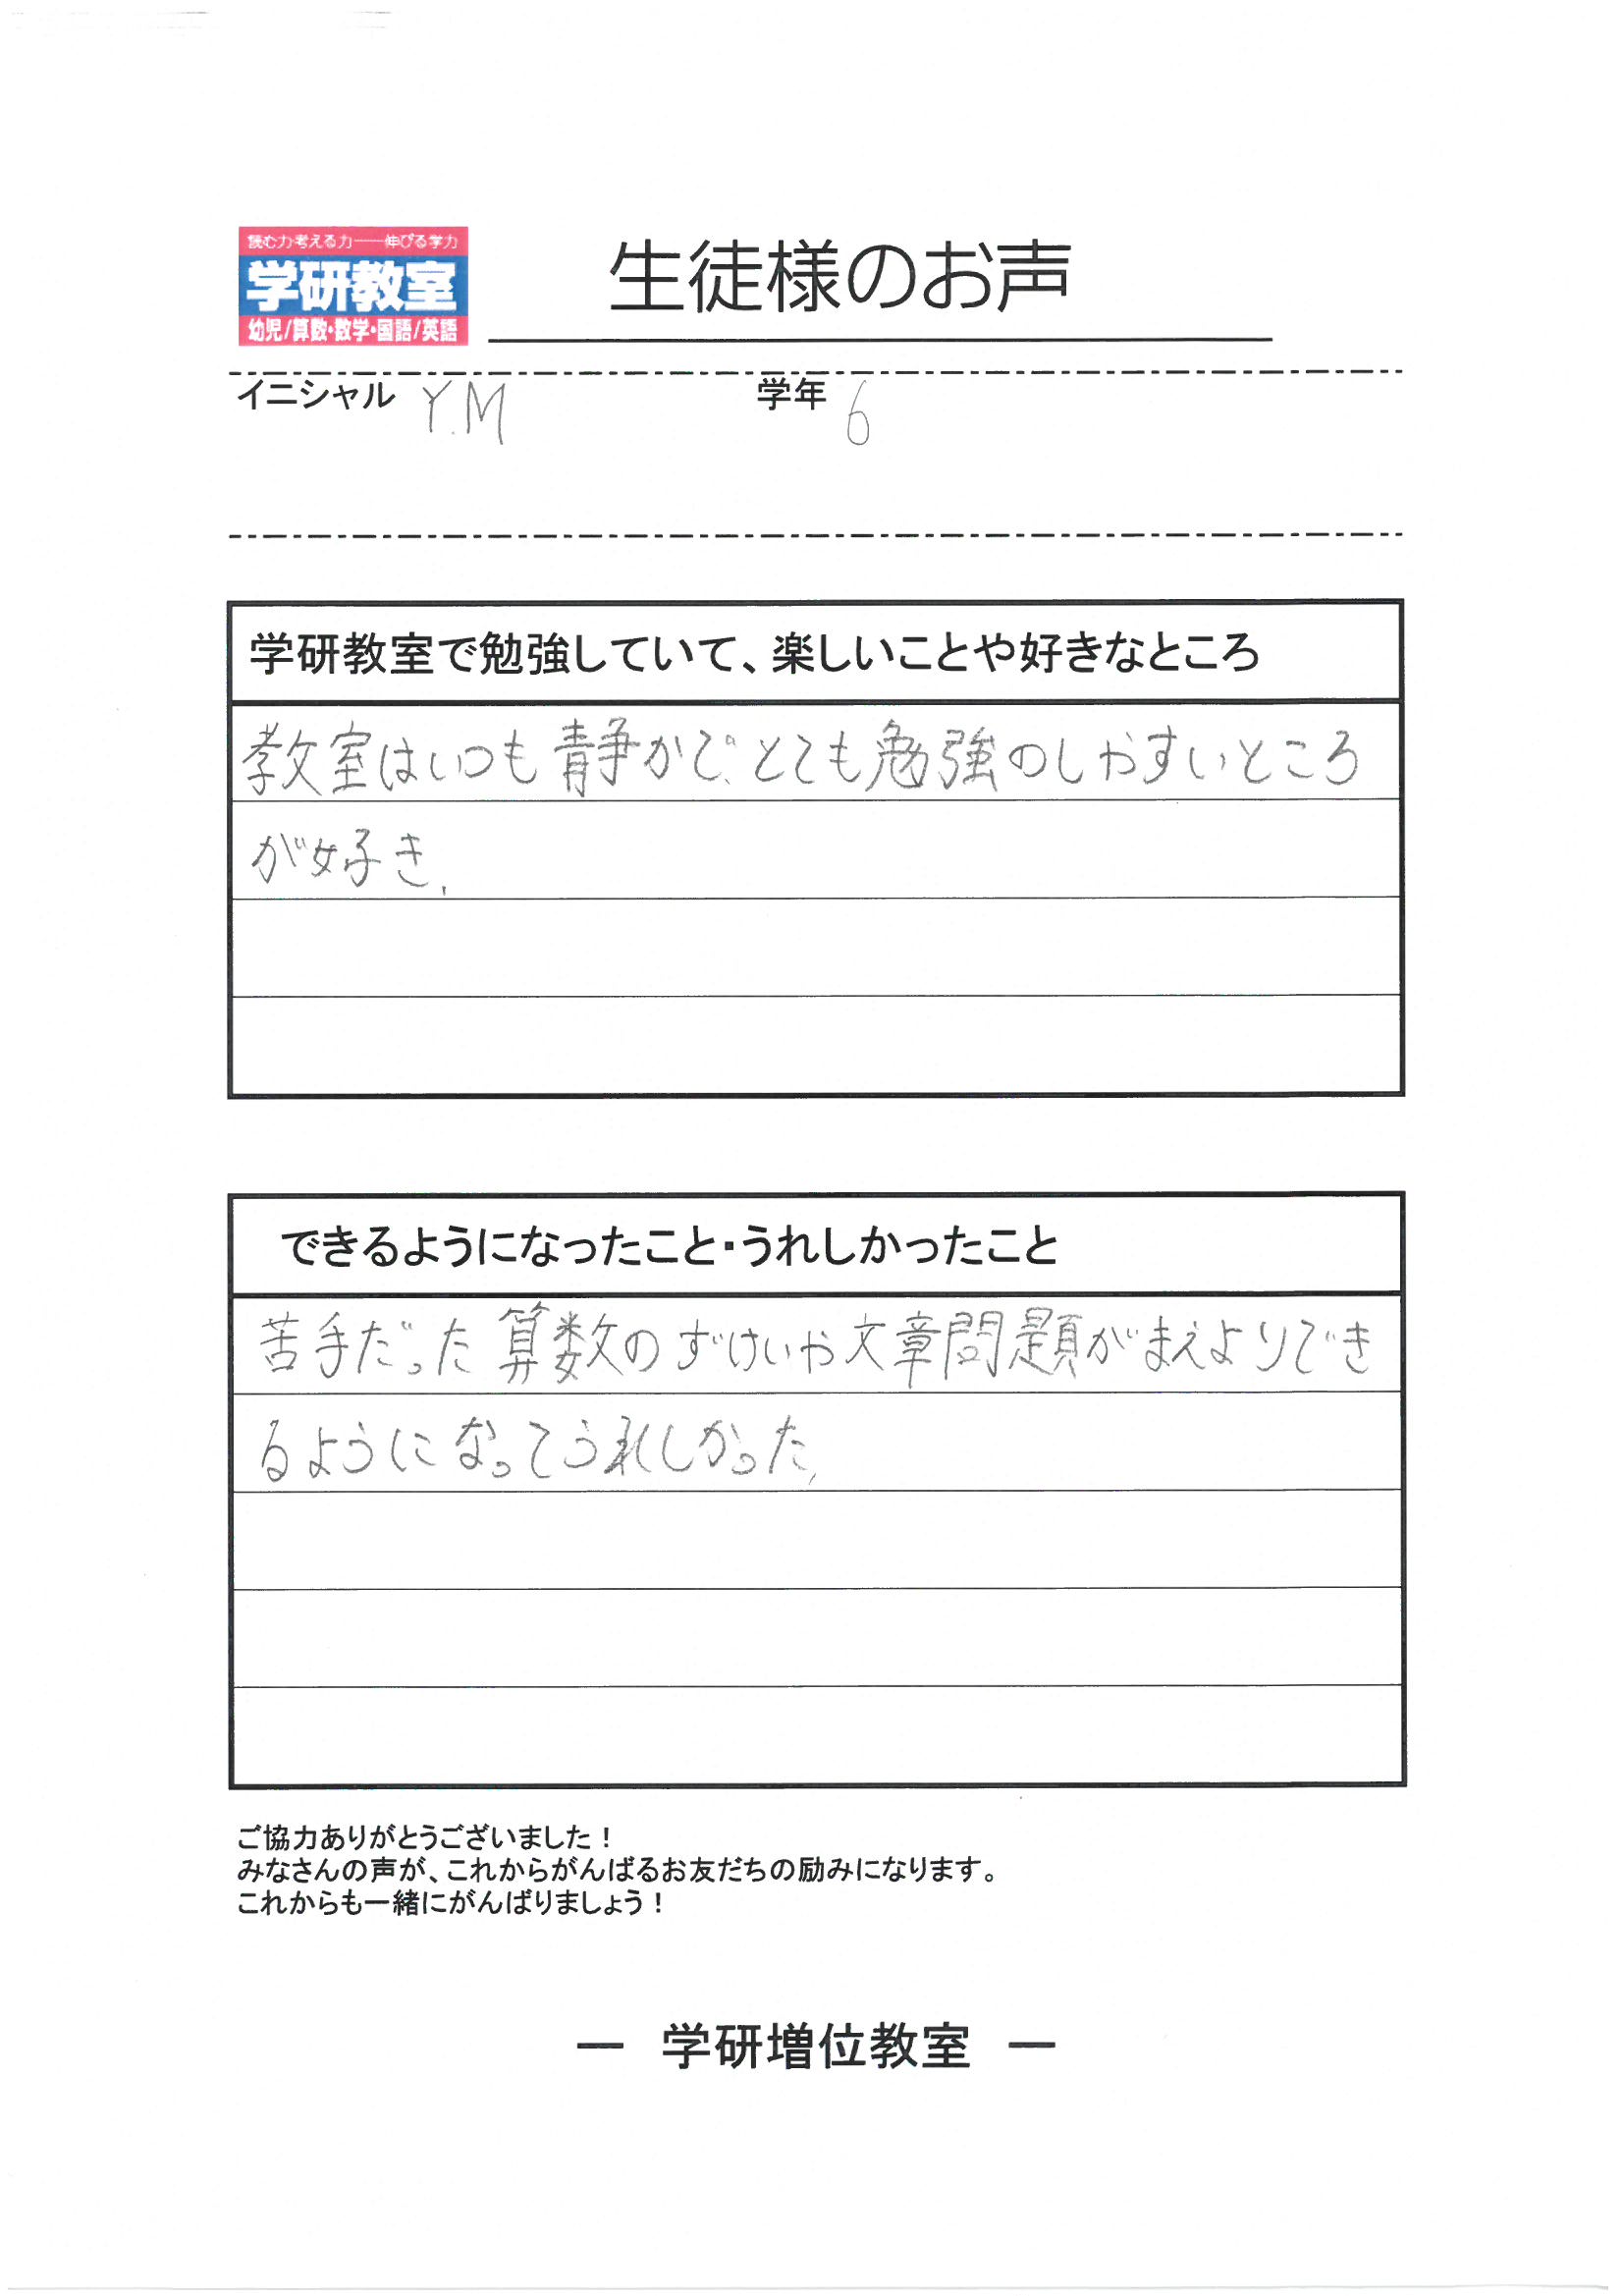 読む力考える力――伸びる学力
学研教室
幼児/算数・数学・国語/英語
生徒様のお声
イニシャル Y.M 学年 6
学研教室で勉強していて、楽しいことや好きなところ
教室はいつも静かで、とても勉強のしやすいところ
が好き、
できるようになったこと・うれしかったこと
苦手だった算数のずけいや文章問題がまえよりでき
るようになってうれしかった、
ご協力ありがとうございました!
みなさんの声が、これからがんばるお友だちの励みになります。
これからも一緒にがんばりましょう!
― 学研増位教室 ―